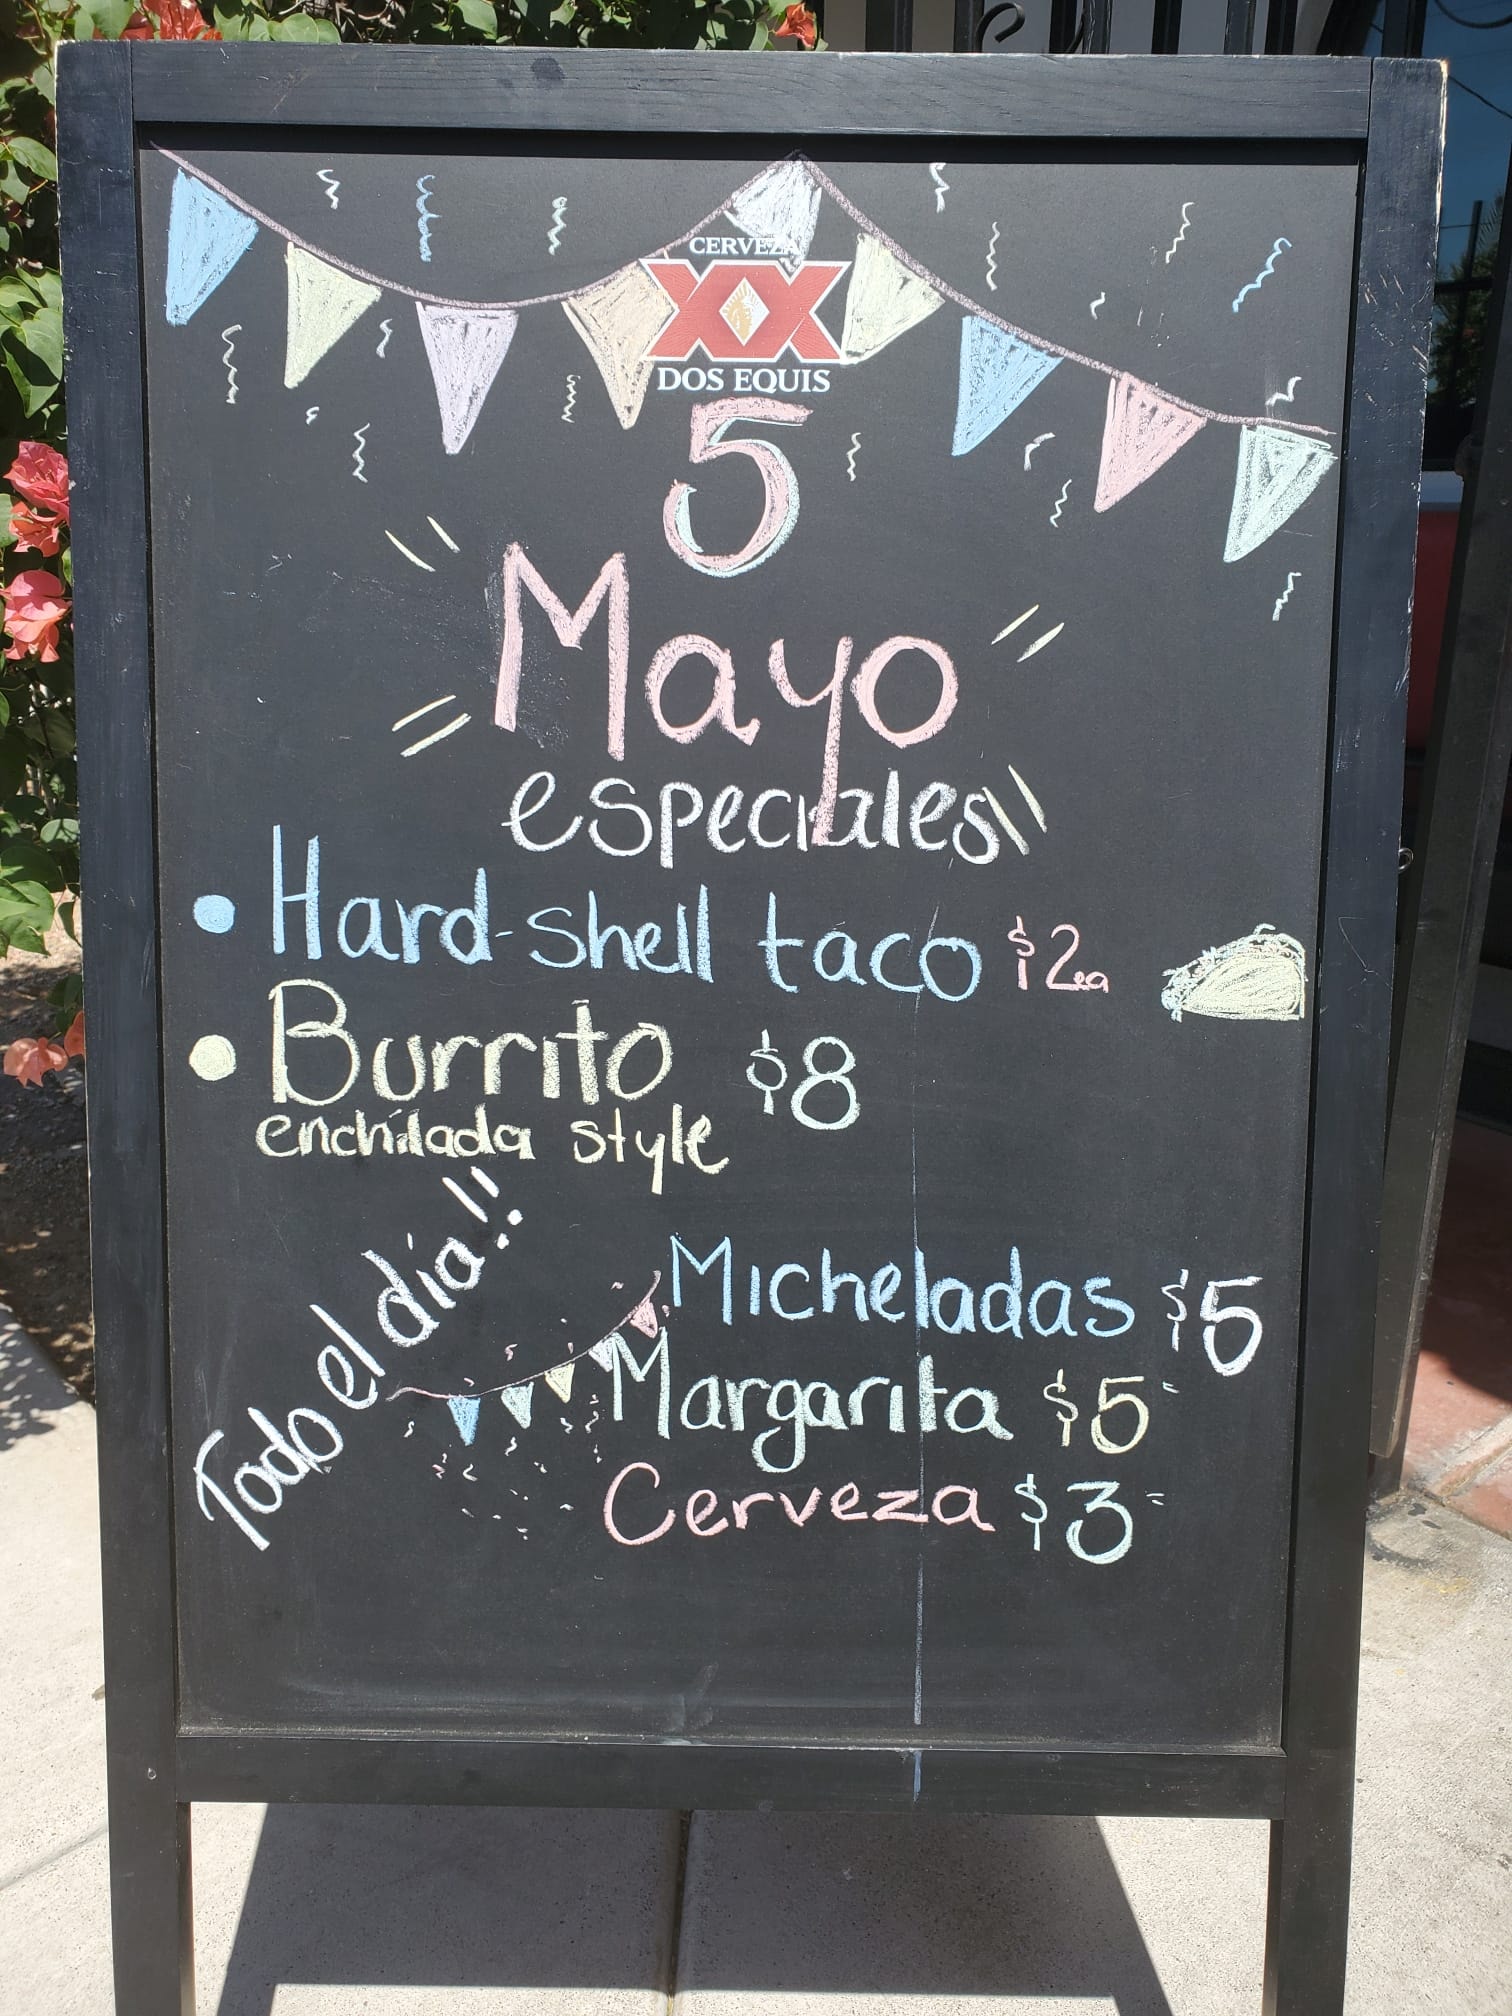 CERVEZA
XX
DOS EQUIS
5
Mayo
especiales
• Hard-shell taco $2ea
• Burrito $8
enchilada style
Todo el día!!
Micheladas $5
Margarita $5
Cerveza $3